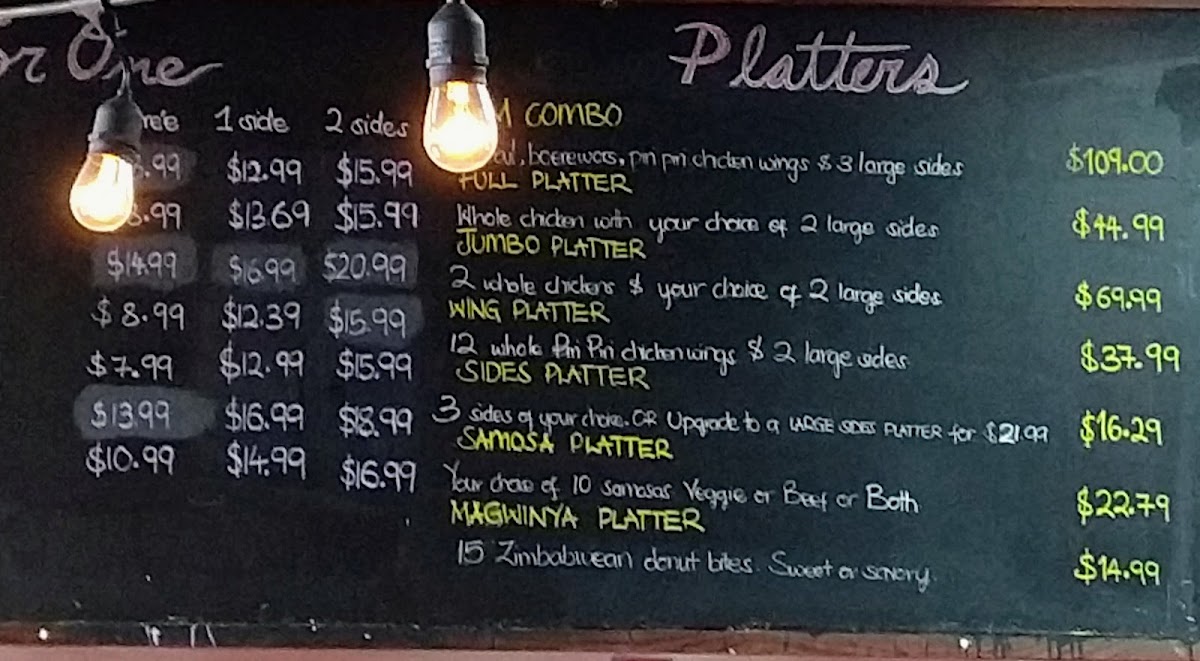 Platters
1 side 2 sides
COMBO
boerewors, piri piri chicken wings & 3 large sides $109.00
$12.99 $15.99
FULL PLATTER
$13.69 $15.99
Whole chicken with your choice of 2 large sides $44.99
JUMBO PLATTER
$14.99 $16.99 $20.99
2 whole chickens & your choice of 2 large sides $69.99
$8.99 $12.39 $15.99
WING PLATTER
12 whole Piri Piri chicken wings & 2 large sides $37.99
$7.99 $12.99 $15.99
SIDES PLATTER
$13.99 $16.99 $18.99
3 sides of your choice. OR Upgrade to a LARGE SIDES PLATTER for $21.99 $16.29
SAMOSA PLATTER
$10.99 $14.99 $16.99
Your choice of 10 samosas Veggie or Beef or Both $22.79
MAGWINYA PLATTER
15 Zimbabwean donut bites. Sweet or savory. $14.99